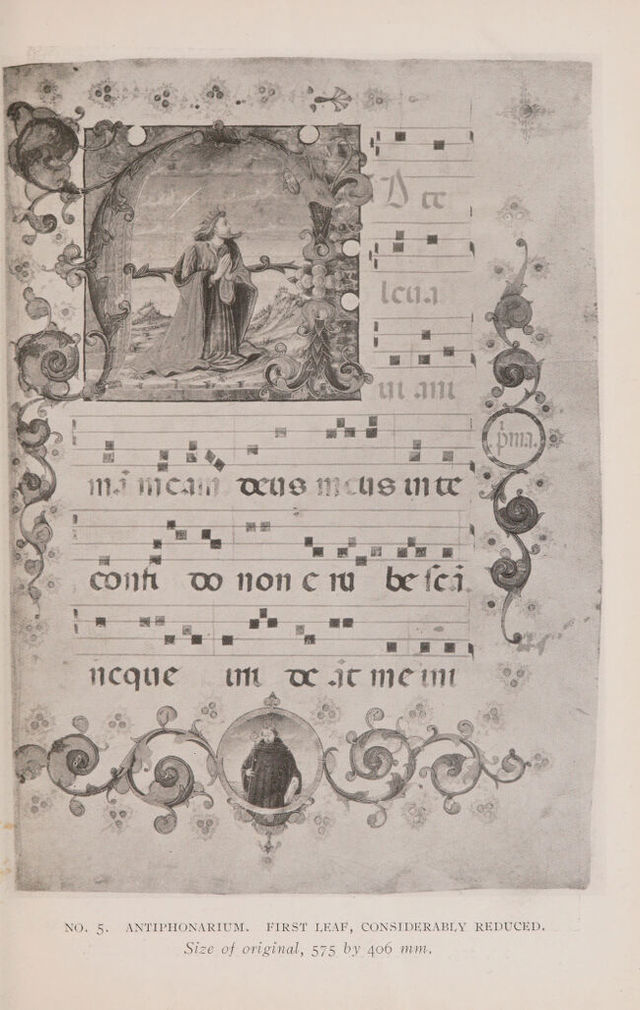 D te
leua
ui ani
mā meam deus meus in te
confi do non e ru be scā
neque irri de āt me ini
p̄ma.
NO. 5. ANTIPHONARIUM. FIRST LEAF, CONSIDERABLY REDUCED.
Size of original, 575 by 406 mm.